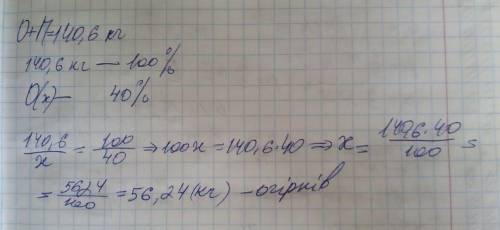 О+П=140,6 кг
140,6 кг — 100%
О(х) — 40%
140,6/х = 100/40 ⇒ 100х = 140,6·40 ⇒ х = 140,6·40/100 =
= 5624/100 = 56,24 (кг) – огірків